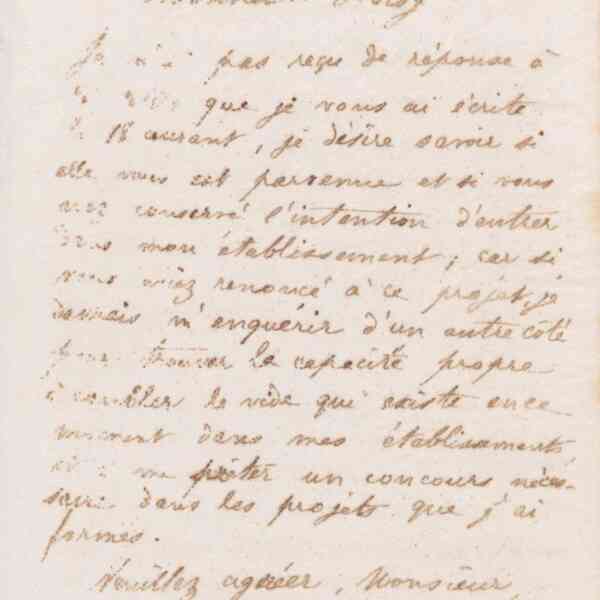 Je n'ai pas reçu de réponse à
que je vous ai écrite
le 18 courant, je désire savoir si
elle vous est parvenue et si vous
avez conservé l'intention d'entrer
dans mon établissement; car si
vous aviez renoncé à ce projet, je
devrais m'enquérir d'un autre côté
pour trouver la capacité propre
à combler le vide qui existe en ce
moment dans mes établissements
et à me prêter un concours néces-
saire dans les projets que j'ai
formés.
Veuillez agréer, Monsieur,